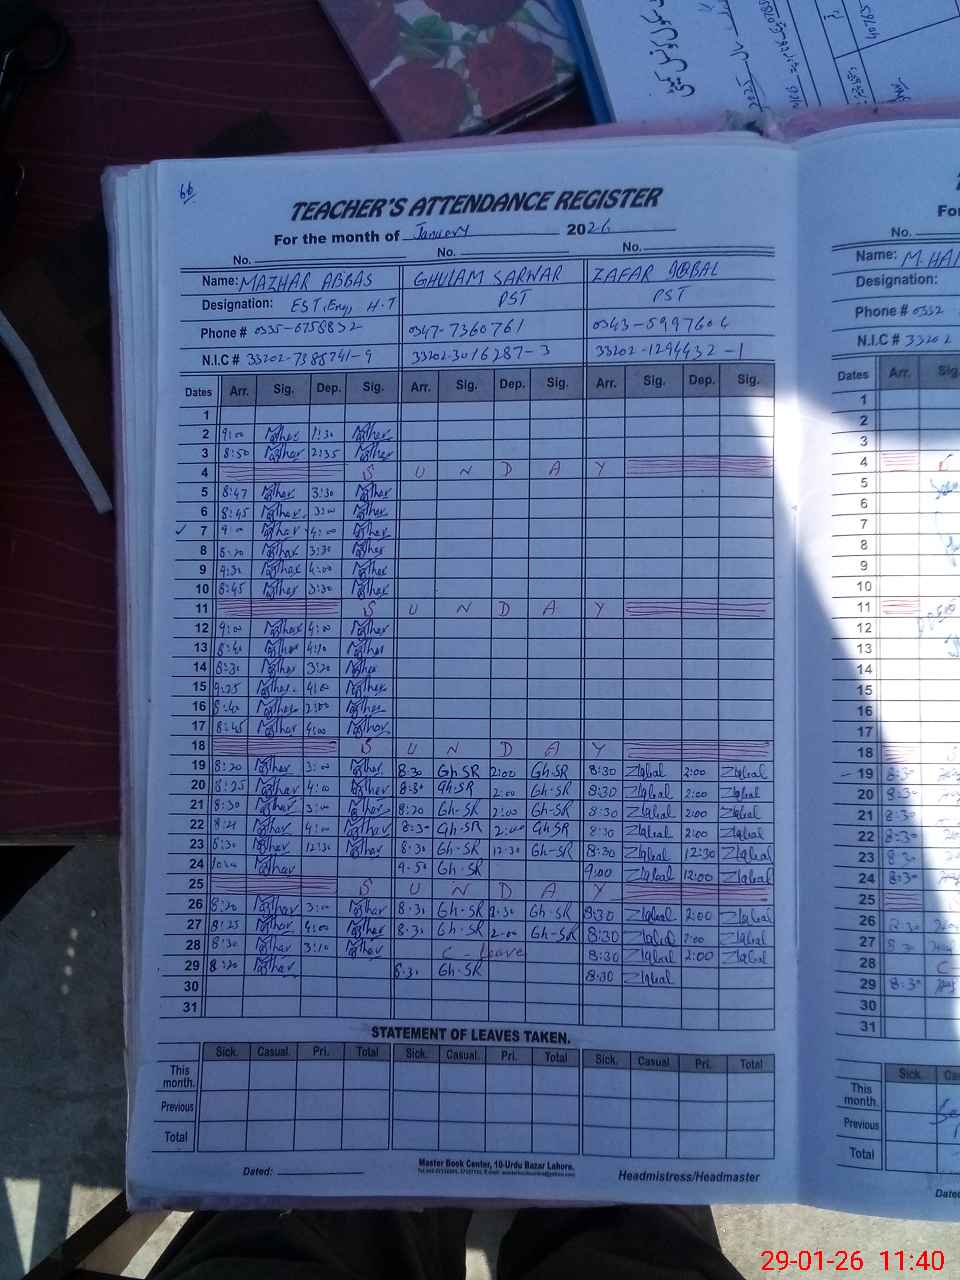 66
TEACHER'S ATTENDANCE REGISTER
For the month of January 2026
No. No. No.
Name: MAZHAR ABBAS GHULAM SARWAR ZAFAR IQBAL
Designation: EST (Eng), H.T PST PST
Phone # 0335-6758832 0347-7360761 0343-5997604
N.I.C # 33202-7385741-9 33202-3016287-3 33202-1294432-1
Dates Arr. Sig. Dep. Sig. Arr. Sig. Dep. Sig. Arr. Sig. Dep. Sig.
1
2 9:00 Mazhar 1:30 Mazhar
3 8:50 Mazhar 2:35 Mazhar
4 S U N D A Y
5 8:47 Mazhar 3:30 Mazhar
6 8:45 Mazhar 3:00 Mazhar
✓ 7 9:00 Mazhar 4:00 Mazhar
8 8:20 Mazhar 3:30 Mazhar
9 9:30 Mazhar 4:00 Mazhar
10 8:45 Mazhar 3:30 Mazhar
11 S U N D A Y
12 9:00 Mazhar 4:00 Mazhar
13 8:40 Mazhar 4:10 Mazhar
14 8:30 Mazhar 3:20 Mazhar
15 9:25 Mazhar 4:00 Mazhar
16 8:40 Mazhar 2:00 Mazhar
17 8:45 Mazhar 4:00 Mazhar
18 S U N D A Y
19 8:20 Mazhar 3:00 Mazhar 8:30 Gh.SR 2:00 Gh-SR 8:30 ZIqbal 2:00 ZIqbal
20 8:25 Mazhar 4:00 Mazhar 8:30 Gh.SR 2:00 Gh-SR 8:30 ZIqbal 2:00 ZIqbal
21 8:30 Mazhar 3:00 Mazhar 8:20 Gh-SR 2:00 Gh-SR 8:30 ZIqbal 2:00 ZIqbal
22 8:21 Mazhar 4:00 Mazhar 8:30 Gh-SR 2:00 Gh SR 8:30 ZIqbal 2:00 ZIqbal
23 8:30 Mazhar 12:30 Mazhar 8:30 Gh-SR 12:30 Gh-SR 8:30 ZIqbal 12:30 ZIqbal
24 Mazhar 9:50 Gh-SR 9:00 ZIqbal 12:00 ZIqbal
25 S U N D A Y
26 8:20 Mazhar 3:00 Mazhar 8:30 Gh-SR Gh-SR 8:30 ZIqbal 2:00 ZIqbal
27 8:25 Mazhar 4:00 Mazhar 8:30 Gh-SR 2:00 Gh-SR 8:30 ZIqbal 2:00 ZIqbal
28 8:30 Mazhar 3:10 Mazhar C - Leave 8:30 ZIqbal 2:00 ZIqbal
29 8:20 Mazhar 8:30 Gh-SR 8:30 ZIqbal
30
31
STATEMENT OF LEAVES TAKEN.
Sick. Casual. Pri. Total Sick. Casual. Pri. Total Sick. Casual. Pri. Total
This month.
Previous
Total
Dated:
Master Book Center, 10-Urdu Bazar Lahore.
Headmistress/Headmaster
No.
Name: M.
Designation:
Phone # 0332
N.I.C # 33202
Dates Arr. Sig.
1
2
3
4
5
6
7
8
9
10
11
12
13
14
15
16
17
18
19 8:30
20 8:30
21 8:30
22 8:30
23 8:30
24 8:30
25
26 8:30
27 8:30
28 C
29 8:30
30
31
Sick.
This month.
Previous
Total
29-01-26 11:40